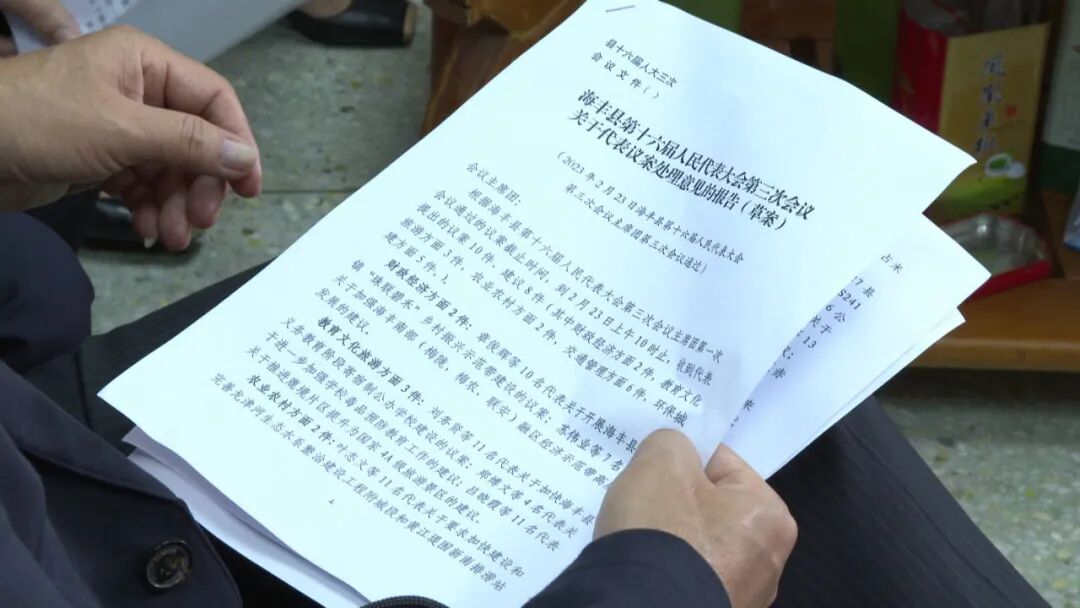 县十六届人大三次
会议文件( )
海丰县第十六届人民代表大会第三次会议
关于代表议案处理意见的报告（草案）
（2023年2月23日海丰县第十六届人民代表大会
第三次会议主席团第三次会议通过）
会议主席团：
根据海丰县第十六届人民代表大会第三次会议主席团第一次
会议通过的议案截止时间，到2月23日上午10时止，收到代表
提出的议案10件、建议8件（其中财政经济方面2件，教育文化
旅游方面3件，农业农村方面2件，交通管理方面6件，环保城
建方面5件）。
财政经济方面2件：
等10名代表关于开展海丰县
镇“珠联碧禾”乡村振兴示范带建设的议案，苏伟业等7名
关于加强海丰南部（梅陇、梅农、联安）融区经济示范带
发展的建议。
教育文化旅游方面3件：
等11名代表关于加快海丰县
义务教育阶段寄宿制公办学校建设的议案；
等4名代表关
于进一步加强学校毒品预防教育工作的建议；吕晓霞等11名代表
关于推进
片区提升为国家4A级旅游景区的建议。
农业农村方面2件：叶志文等11名代表关于要求加快建设和
完善龙津河生态水系整治建设工程附城段和黄江堤围新南
凤凰单枞
占米
17县
S241
6公
关于
13